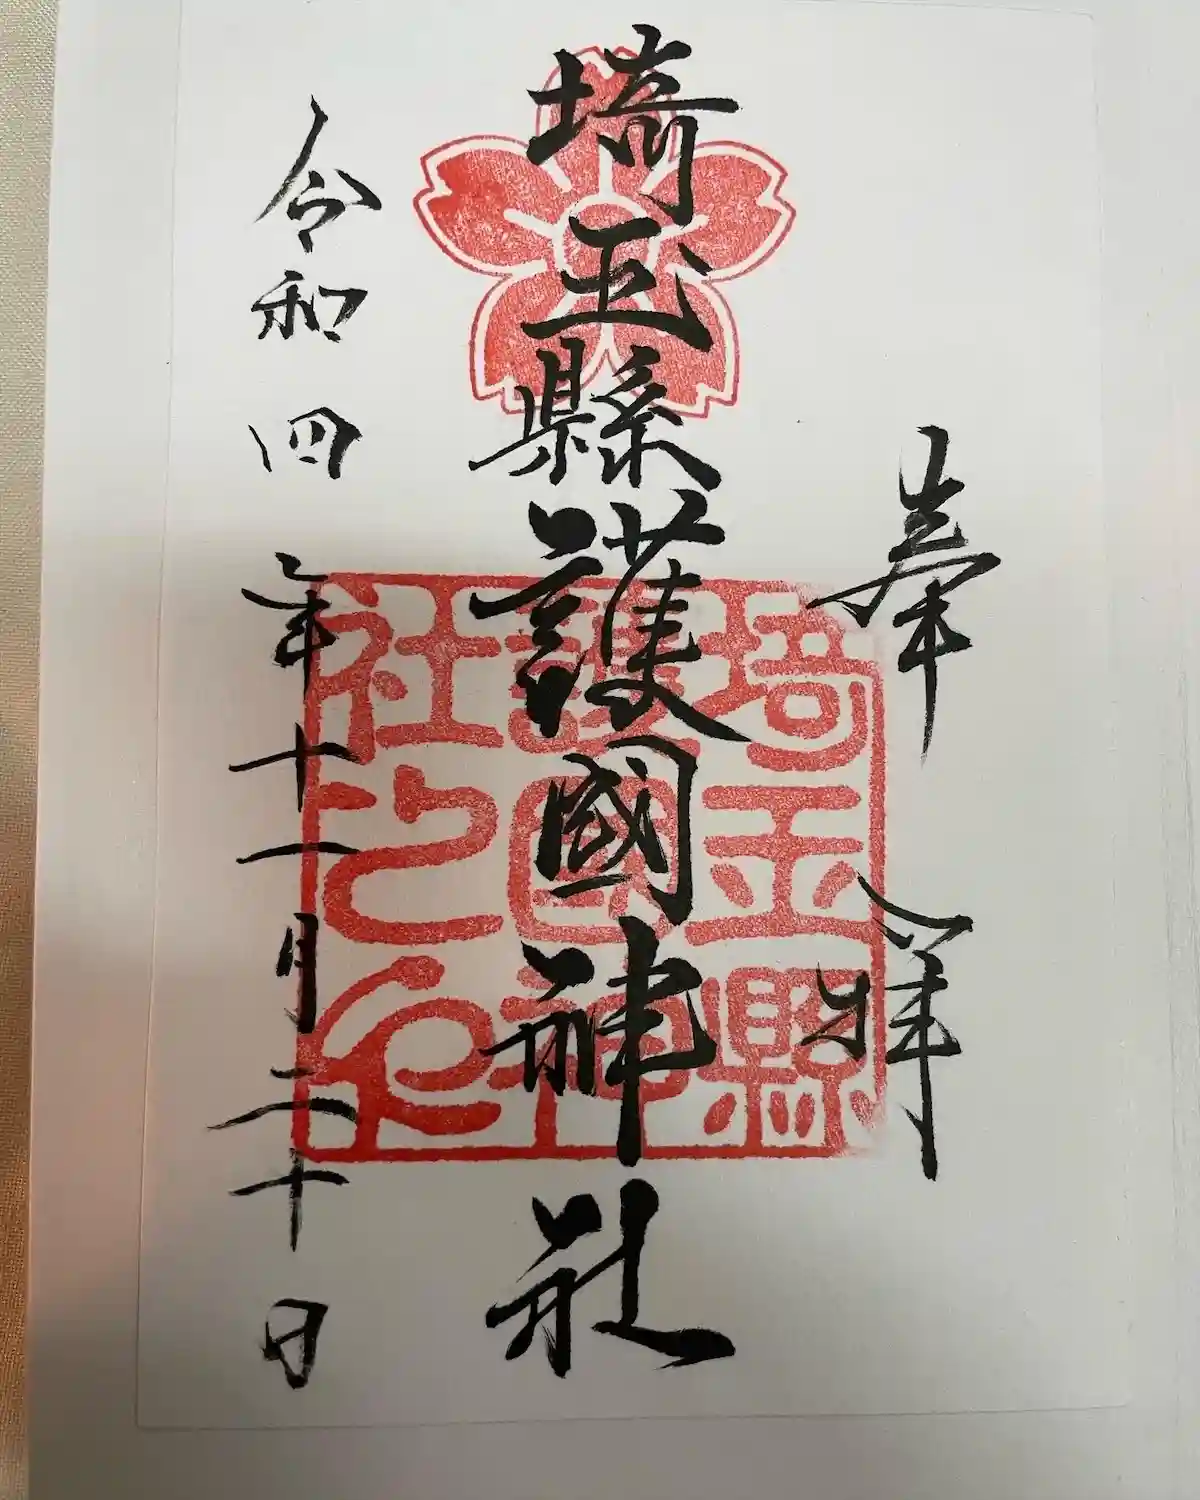 奉拝
埼玉縣護國神社
埼玉縣
護國神
社之印
令和四年十一月二十日